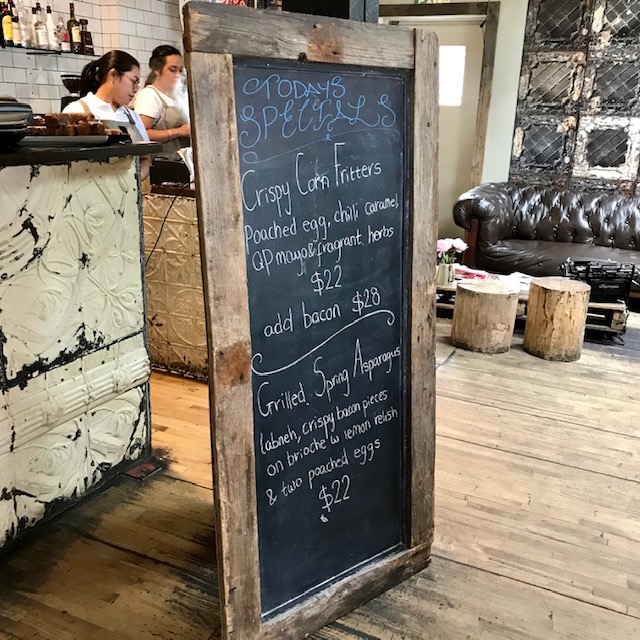 TODAYS
SPECIALS
Crispy Corn Fritters
Poached egg, chili caramel,
QP mayo & fragrant herbs
$22
add bacon $28
Grilled Spring Asparagus
labneh, crispy bacon pieces
on brioche w lemon relish
& two poached eggs
$22